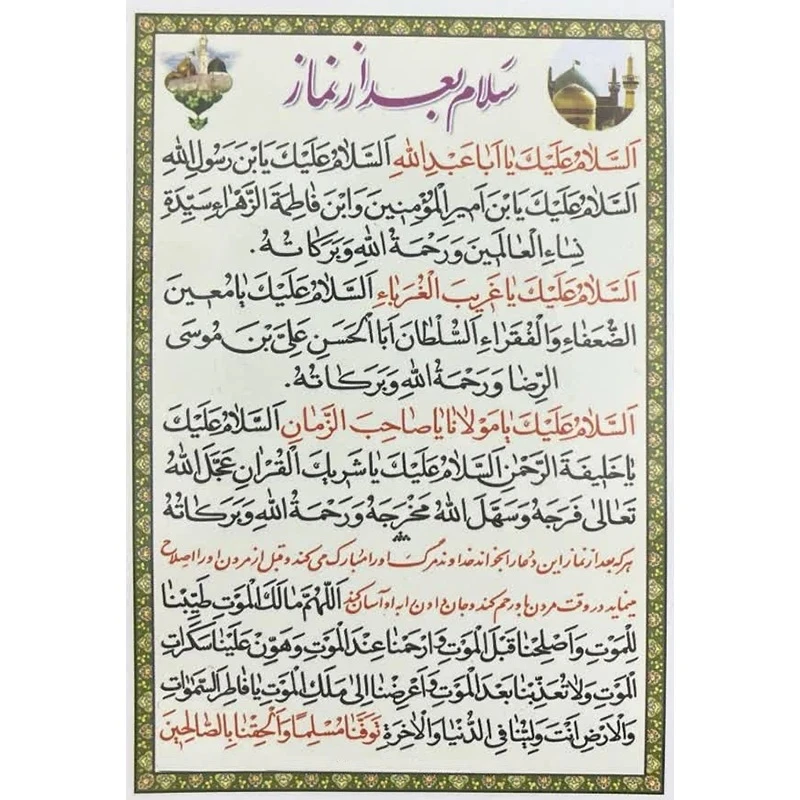 سلام بعد از نماز
اَلسَّلامُ عَلَیْكَ یا اَبا عَبْدِ اللهِ اَلسَّلامُ عَلَیْكَ یَا بْنَ رَسُولِ اللهِ
اَلسَّلامُ عَلَیْكَ یَا بْنَ اَمیرِ الْمُؤْمِنینَ وَ ابْنَ فاطِمَةَ الزَّهْراءِ سَیِّدَةِ
نِساءِ الْعالَمینَ وَ رَحْمَةُ اللهِ وَ بَرَکاتُهُ.
اَلسَّلامُ عَلَیْكَ یا غَریبَ الْغُرَباءِ اَلسَّلامُ عَلَیْكَ یا مُعینَ
الضُّعَفاءِ وَ الْفُقَراءِ اَلسُّلْطانَ اَبَا الْحَسَنِ عَلِیَّ بْنَ مُوسَی
الرِّضا وَ رَحْمَةُ اللهِ وَ بَرَکاتُهُ.
اَلسَّلامُ عَلَیْكَ یا مَوْلانا یا صاحِبَ الزَّمانِ اَلسَّلامُ عَلَیْكَ
یا خَلیفَةَ الرَّحْمٰنِ اَلسَّلامُ عَلَیْكَ یا شَریكَ الْقُرْانِ عَجَّلَ اللهُ
تَعالیٰ فَرَجَهُ وَ سَهَّلَ اللهُ مَخْرَجَهُ وَ رَحْمَةُ اللهِ وَ بَرَکاتُهُ
هر که بعد از نماز این دعا را بخواند خداوند مرگ او را مبارک می کند و قبل از مردن او را اصلاح
مینماید در وقت مردن با و رحم کند و جان دادن را به او آسان کند اَللّٰهُمَّ مالِكَ الْمَوْتِ طَیِّبْنا
لِلْمَوْتِ وَ اَصْلِحْنا قَبْلَ الْمَوْتِ وَ ارْحَمْنا عِنْدَ الْمَوْتِ وَ هَوِّنْ عَلَیْنا سَکَراتِ
الْمَوْتِ وَ لا تُعَذِّبْنا بَعْدَ الْمَوْتِ وَ اَعْرِضْنا اِلیٰ مَلَكِ الْمَوْتِ یا فاطِرَ السَّمٰواتِ
وَ الْاَرْضِ اَنْتَ وَلِیُّنا فِی الدُّنْیا وَ الْاٰخِرَةِ تَوَفَّنا مُسْلِماً وَ اَلْحِقْنا بِالصّالِحینَ